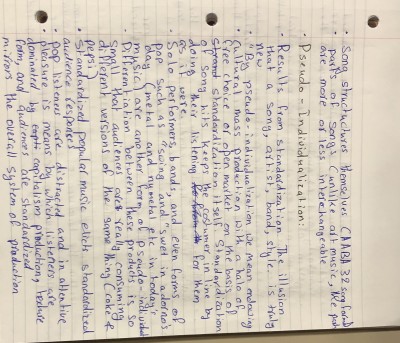 • Song structures themselves (AABA 32 song form)
• parts of songs, unlike art music, the parts
are more or less interchangeable
• Pseudo-Individualization:
• Results from standardization. The illusion
that a song, artist, band, style, is truly
new
• "By pseudo-individualization we mean endowing
cultural mass production with the halo of
free choice or open market on the basis of
standardization itself. Standardization
of song hits keeps the costumer in line by
doing their listening for them
as it were.
• Solo performers, bands, and even forms of
pop such as swing and sweet in adorno's
day (metal and numetal etc. in today
music) are another form of pseudo-individual
Differentiation between these products is so
small that audiences are really consuming
different versions of the same thing (coke &
pepsi)
• Standardized popular music elicit standardized
audience response
• pop listeners are distracted and inattentive
• pleasure is means by which listeners are
dominated by capitalism production, texture
form, and audiences are standardized
mirrors the overall system of production